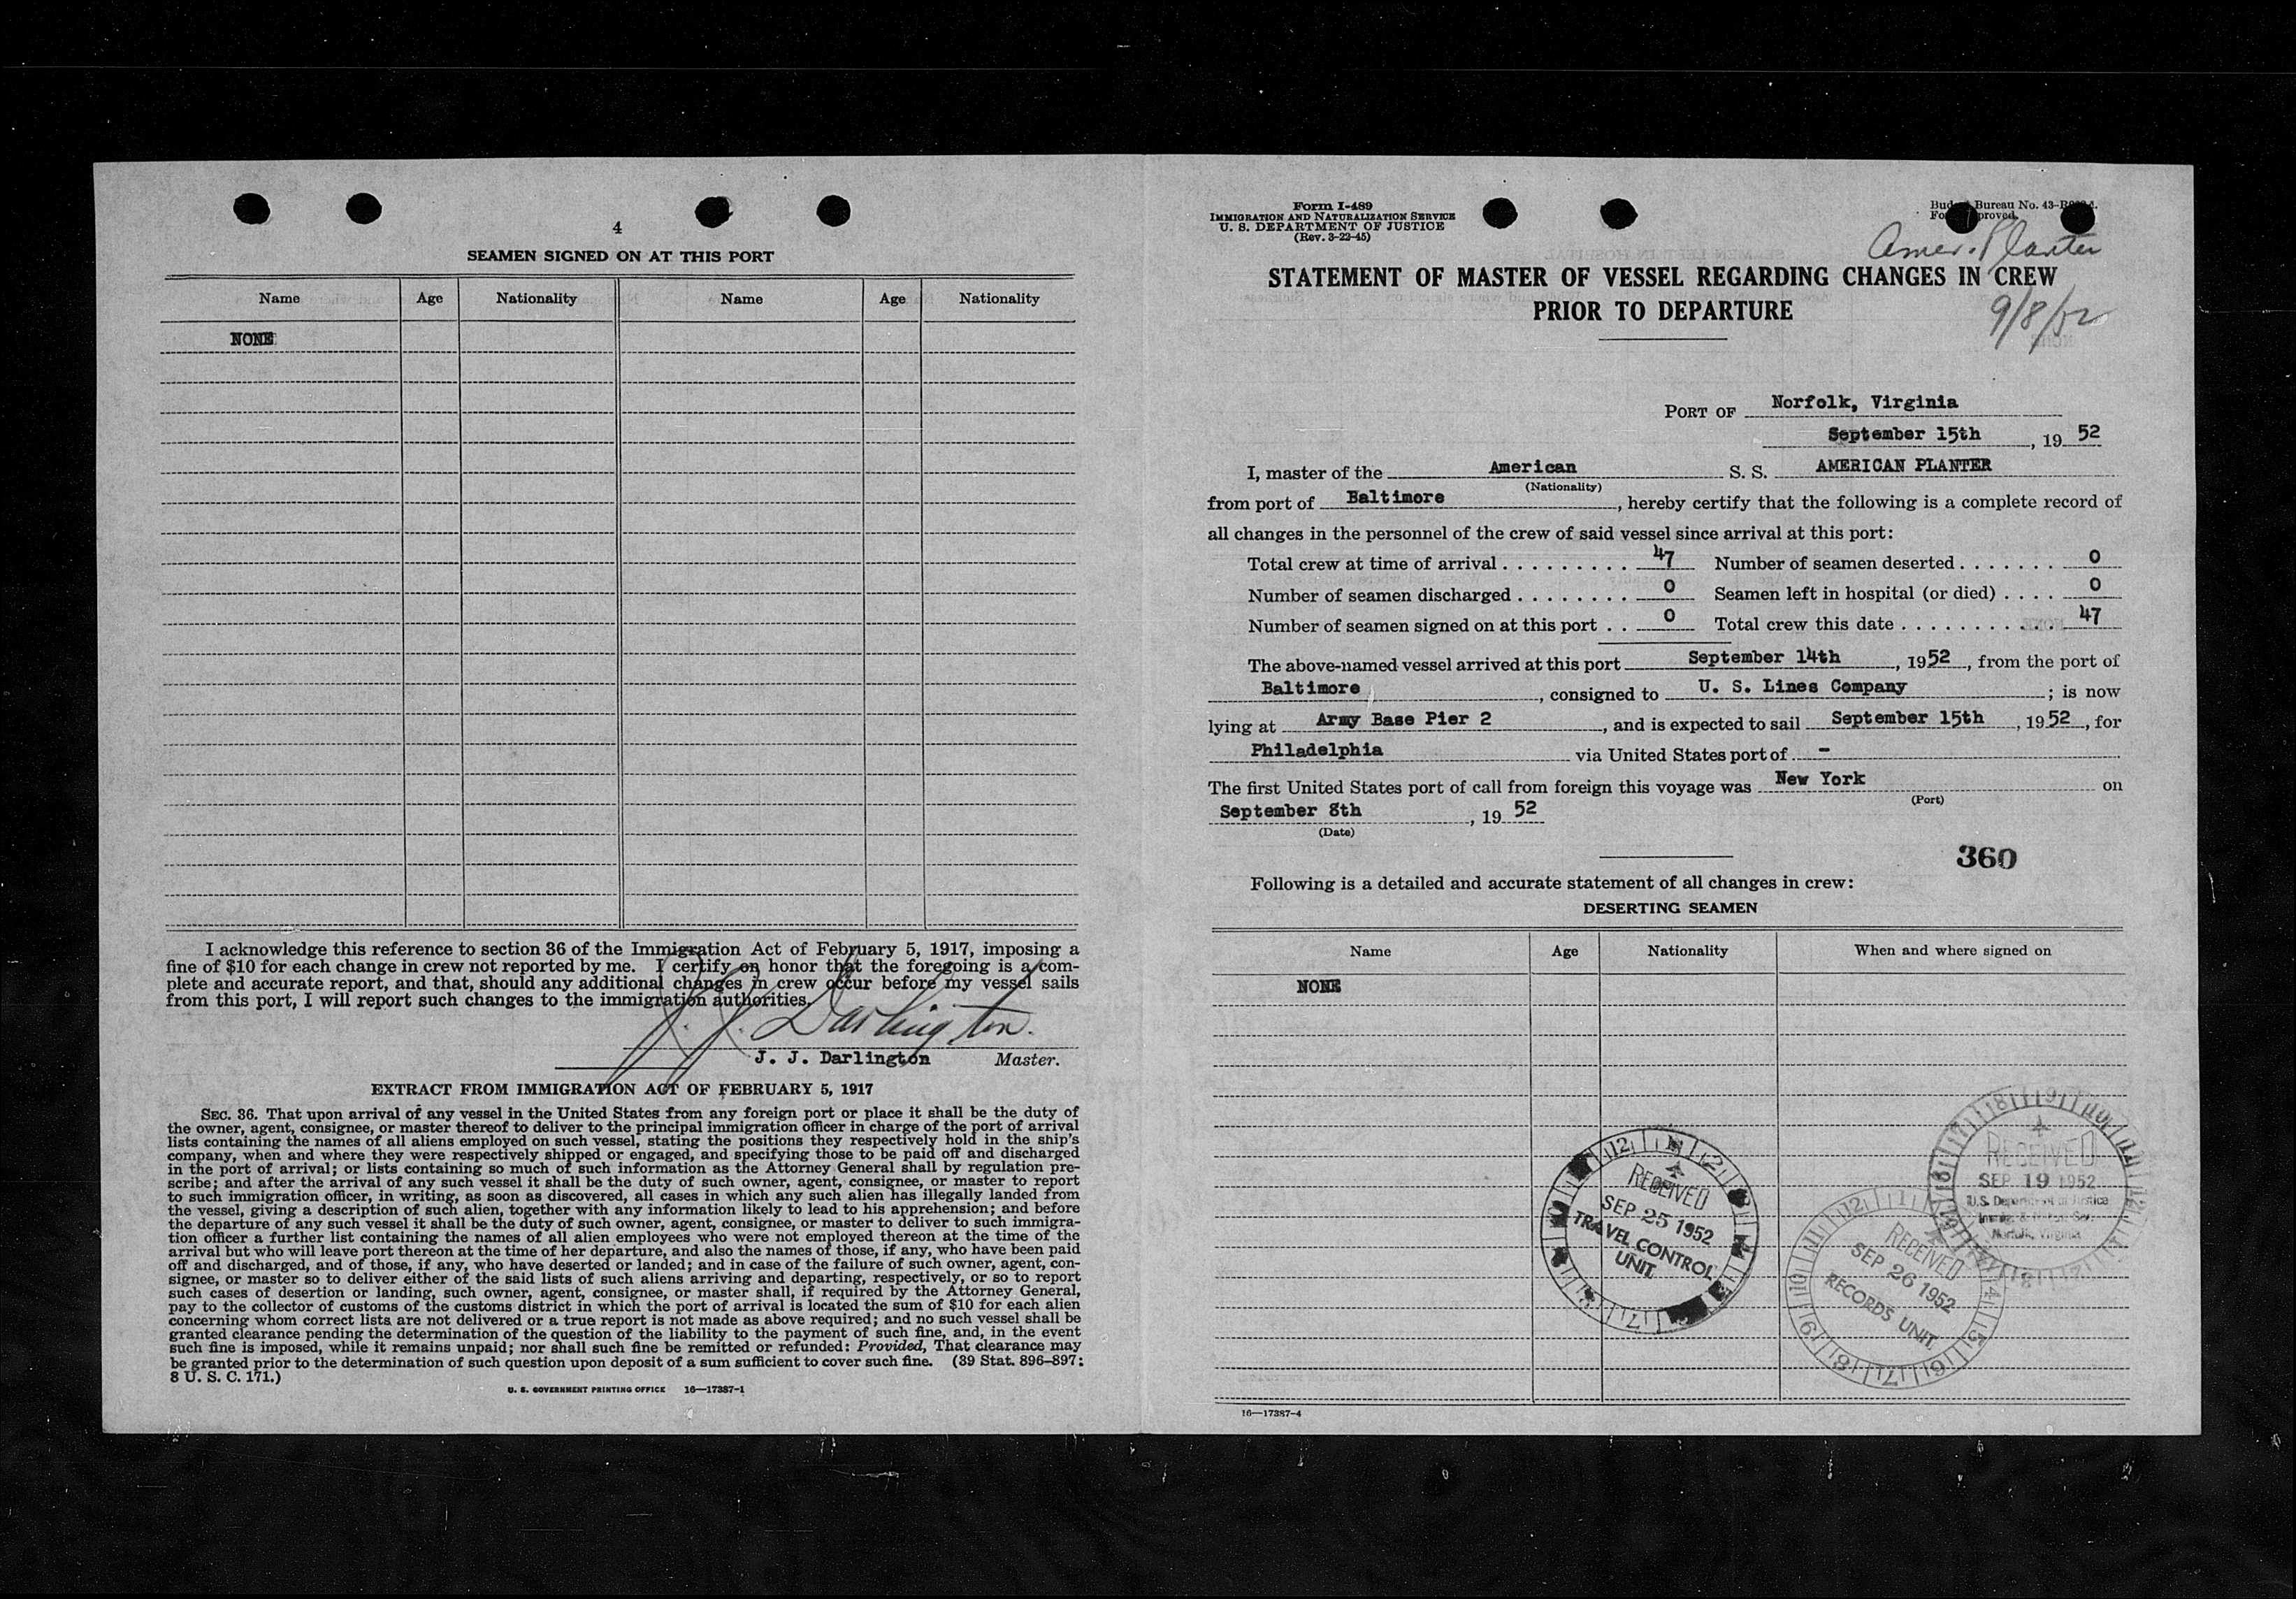 4
SEAMEN SIGNED ON AT THIS PORT
Name Age Nationality Name Age Nationality
NONE
I acknowledge this reference to section 36 of the Immigration Act of February 5, 1917, imposing a
fine of $10 for each change in crew not reported by me. I certify on honor that the foregoing is a com-
plete and accurate report, and that, should any additional changes in crew occur before my vessel sails
from this port, I will report such changes to the immigration authorities.
J. J. Darlington.
J. J. Darlington Master.
EXTRACT FROM IMMIGRATION ACT OF FEBRUARY 5, 1917
SEC. 36. That upon arrival of any vessel in the United States from any foreign port or place it shall be the duty of
the owner, agent, consignee, or master thereof to deliver to the principal immigration officer in charge of the port of arrival
lists containing the names of all aliens employed on such vessel, stating the positions they respectively hold in the ship's
company, when and where they were respectively shipped or engaged, and specifying those to be paid off and discharged
in the port of arrival; or lists containing so much of such information as the Attorney General shall by regulation pre-
scribe; and after the arrival of any such vessel it shall be the duty of such owner, agent, consignee, or master to report
to such immigration officer, in writing, as soon as discovered, all cases in which any such alien has illegally landed from
the vessel, giving a description of such alien, together with any information likely to lead to his apprehension; and before
the departure of any such vessel it shall be the duty of such owner, agent, consignee, or master to deliver to such immigra-
tion officer a further list containing the names of all alien employees who were not employed thereon at the time of the
arrival but who will leave port thereon at the time of her departure, and also the names of those, if any, who have been paid
off and discharged, and of those, if any, who have deserted or landed; and in case of the failure of such owner, agent, con-
signee, or master so to deliver either of the said lists of such aliens arriving and departing, respectively, or so to report
such cases of desertion or landing, such owner, agent, consignee, or master shall, if required by the Attorney General,
pay to the collector of customs of the customs district in which the port of arrival is located the sum of $10 for each alien
concerning whom correct lists are not delivered or a true report is not made as above required; and no such vessel shall be
granted clearance pending the determination of the question of the liability to the payment of such fine, and, in the event
such fine is imposed, while it remains unpaid; nor shall such fine be remitted or refunded: Provided, That clearance may
be granted prior to the determination of such question upon deposit of a sum sufficient to cover such fine. (39 Stat. 896–897;
8 U. S. C. 171.)
U. S. GOVERNMENT PRINTING OFFICE 16—17387-1
Form I-489
IMMIGRATION AND NATURALIZATION SERVICE
U. S. DEPARTMENT OF JUSTICE
(Rev. 3-22-45)
Bureau No. 43-
Amer. Planter
9/8/52
STATEMENT OF MASTER OF VESSEL REGARDING CHANGES IN CREW
PRIOR TO DEPARTURE
PORT OF Norfolk, Virginia
September 15th, 19 52
I, master of the American S. S. AMERICAN PLANTER
(Nationality)
from port of Baltimore, hereby certify that the following is a complete record of
all changes in the personnel of the crew of said vessel since arrival at this port:
Total crew at time of arrival 47 Number of seamen deserted 0
Number of seamen discharged 0 Seamen left in hospital (or died) 0
Number of seamen signed on at this port 0 Total crew this date 47
The above-named vessel arrived at this port September 14th, 1952, from the port of
Baltimore, consigned to U. S. Lines Company; is now
lying at Army Base Pier 2, and is expected to sail September 15th, 1952, for
Philadelphia via United States port of -
The first United States port of call from foreign this voyage was New York on
(Port)
September 8th, 19 52
(Date)
360
Following is a detailed and accurate statement of all changes in crew:
DESERTING SEAMEN
Name Age Nationality When and where signed on
NONE
RECEIVED
SEP 25 1952
TRAVEL CONTROL
UNIT
RECEIVED
SEP 26 1952
RECORDS UNIT
RECEIVED
SEP 19 1952
U.S. Department of Justice
Norfolk, Virginia
16—17387-4